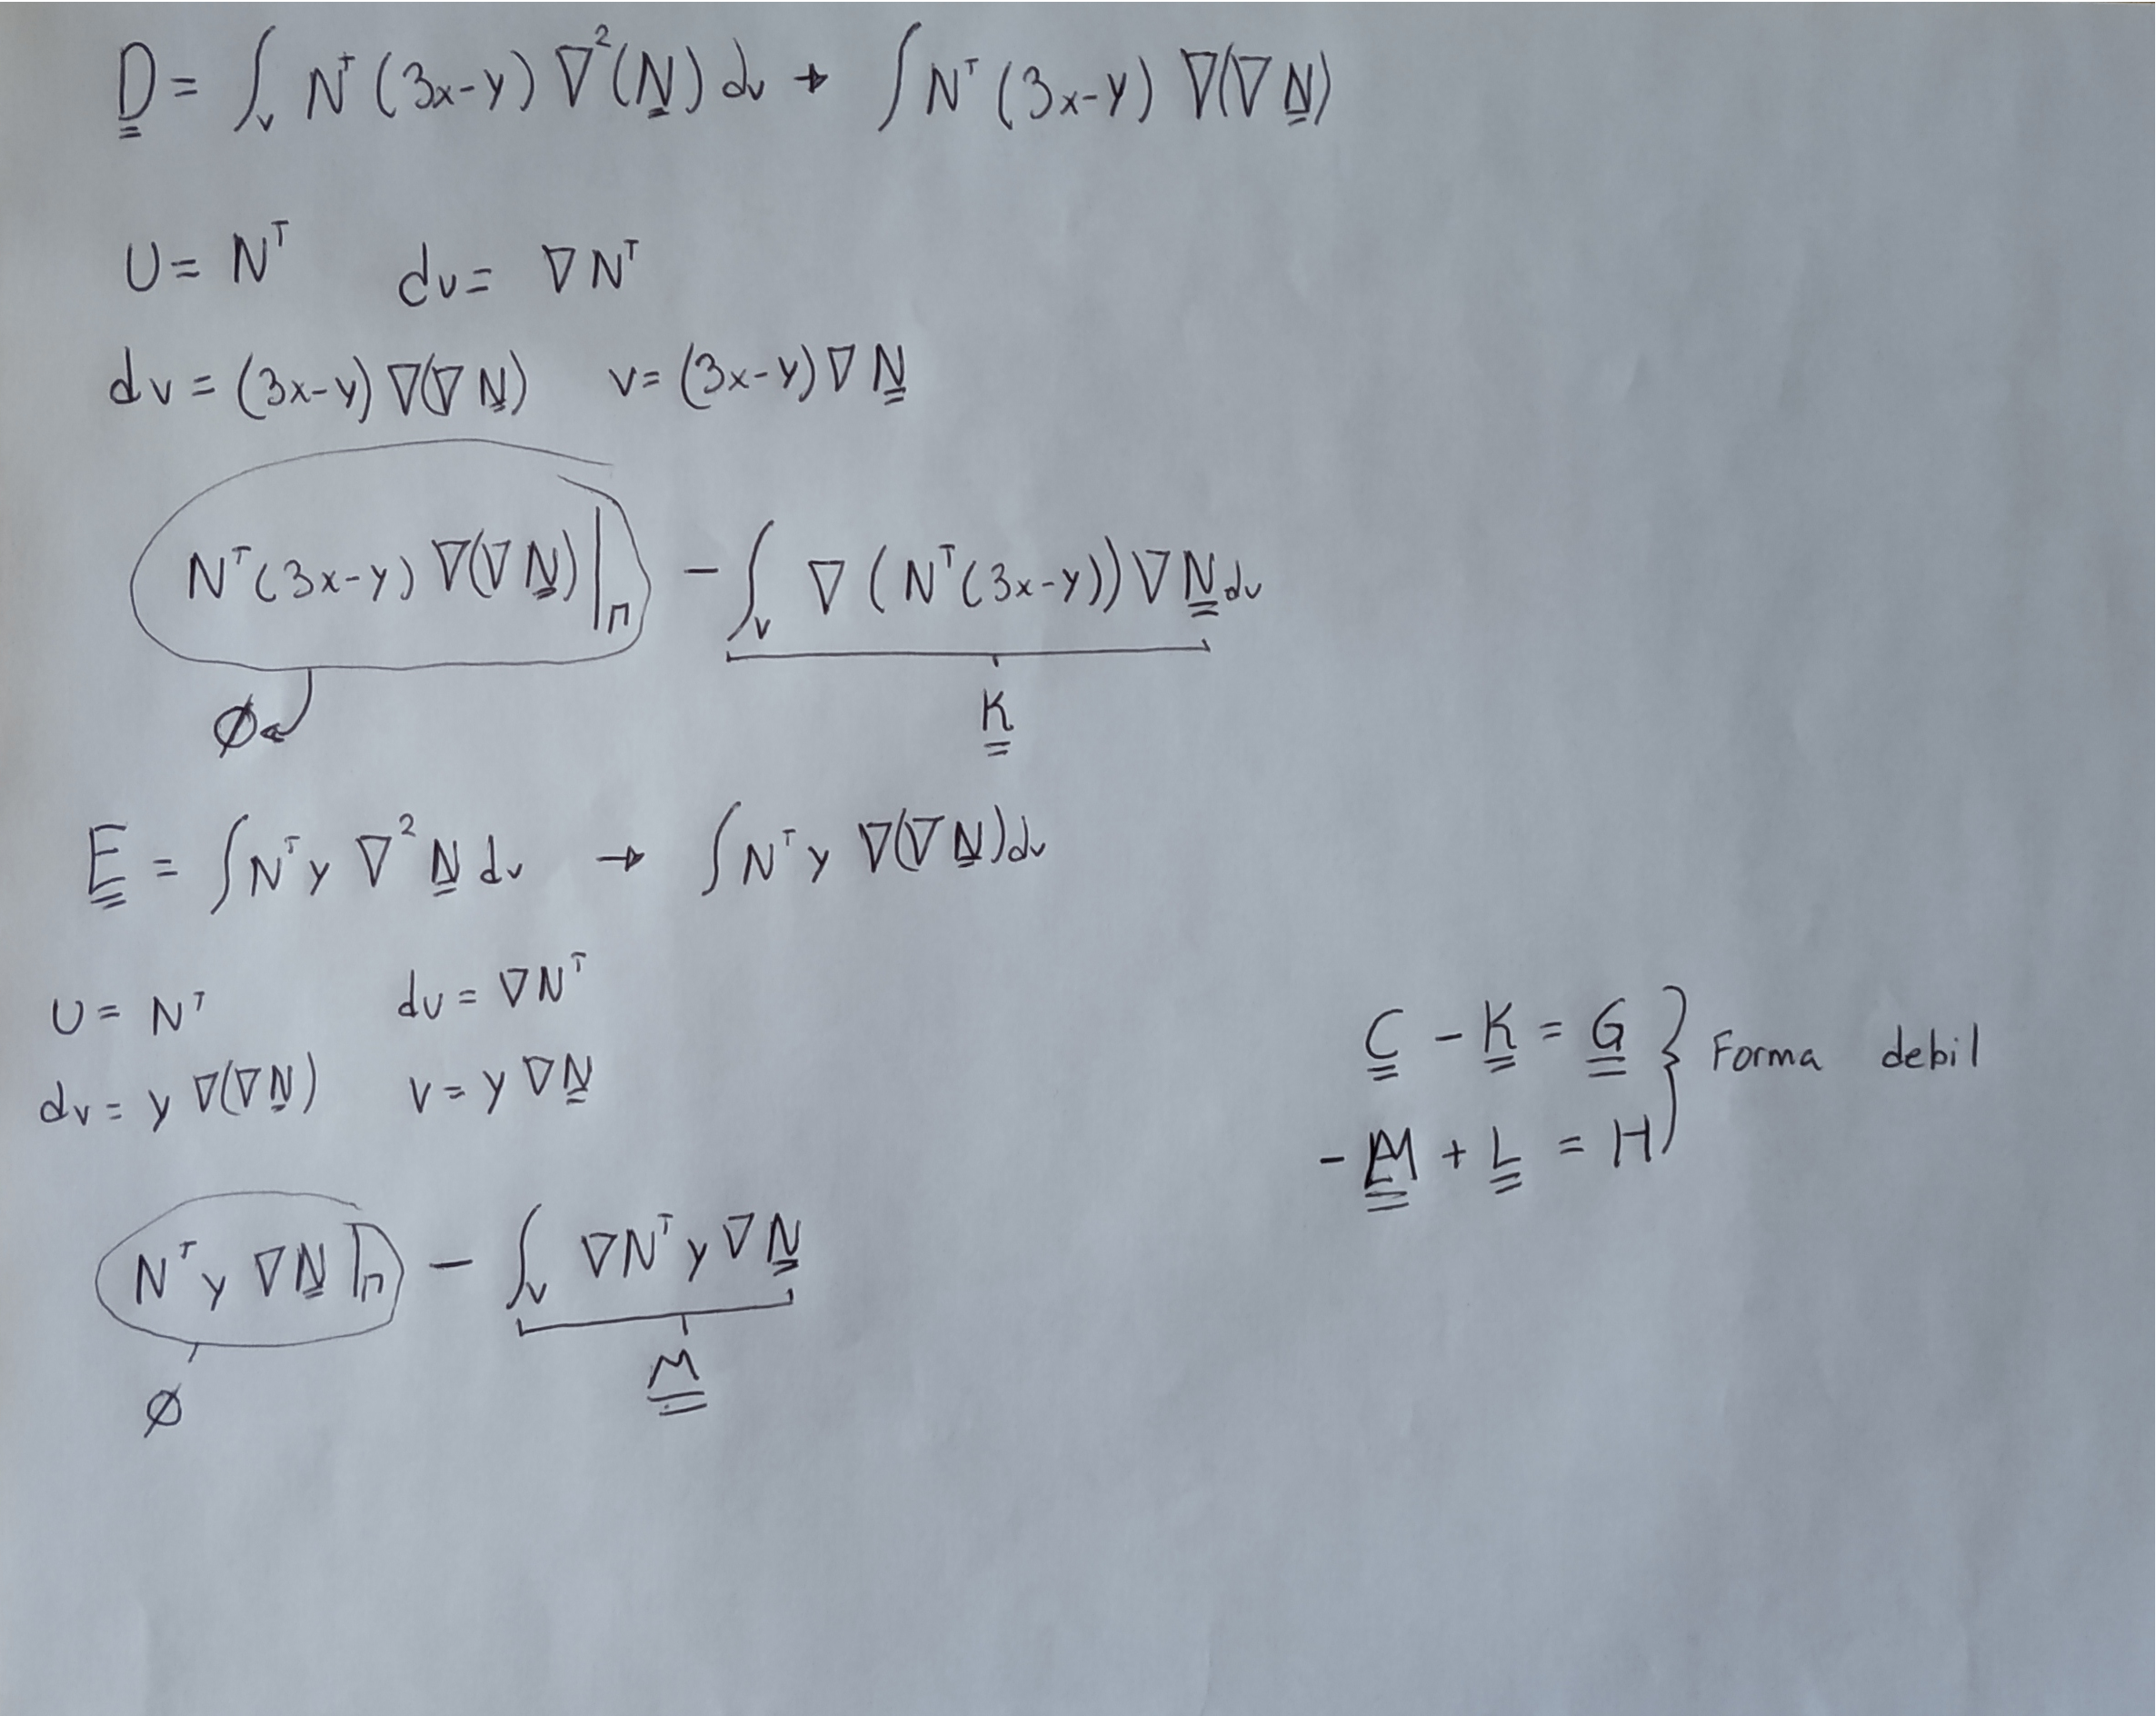 D = ∫_V N^T (3x-y) ∇²(N) dv → ∫ N^T (3x-y) ∇(∇ N)
U = N^T   du = ∇ N^T
dv = (3x-y) ∇(∇ N)   v = (3x-y) ∇ N
N^T (3x-y) ∇(∇ N) |_Π - ∫_V ∇ (N^T (3x-y)) ∇ N dv
Ø   K
E = ∫ N^T y ∇² N dv → ∫ N^T y ∇(∇ N) dv
U = N^T   du = ∇N^T
dv = y ∇(∇ N)   v = y ∇ N
N^T y ∇N |_Π - ∫_V ∇N^T y ∇ N
Ø   M
C - K = G } Forma debil
- M + L = H